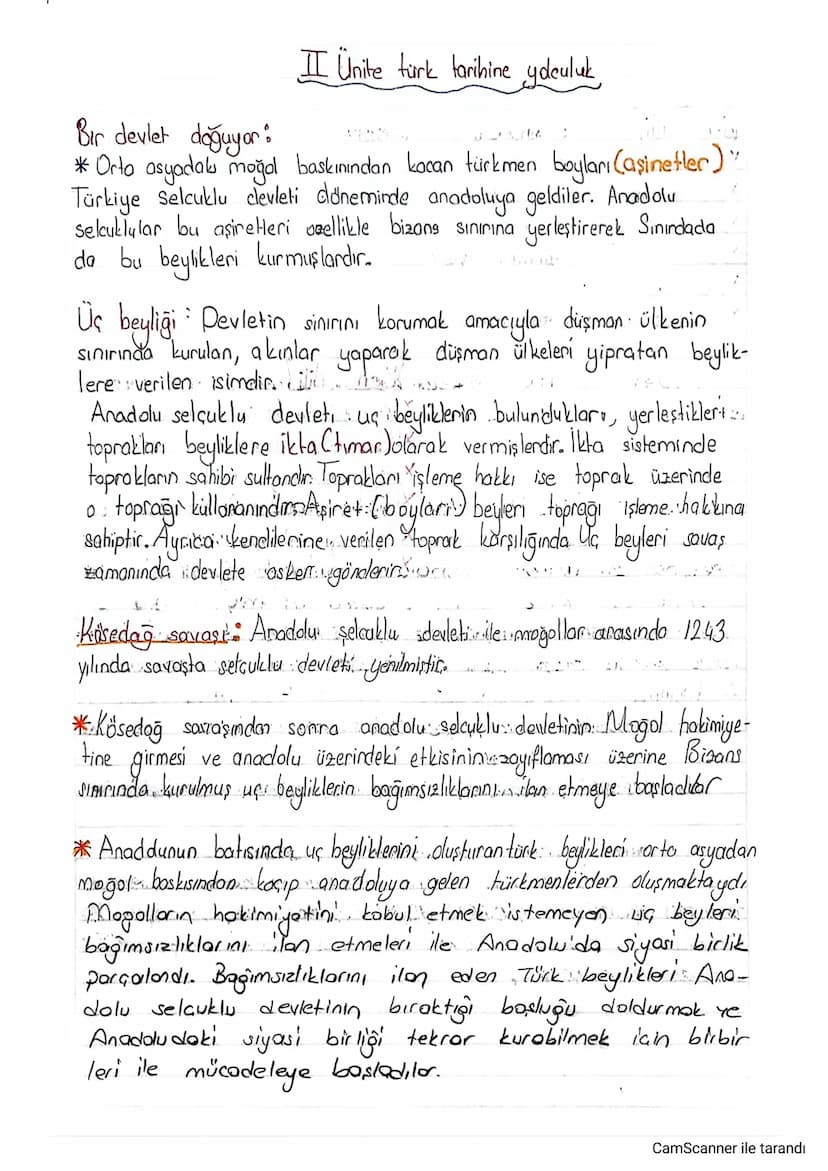 II Ünite türk tarihine yolculuk
Bir devlet doğuyor:
* Orta asyadaki moğol baskınından kacan türkmen boyları (aşinetler)
Türkiye selcuklu devleti döneminde anadoluya geldiler. Anadolu
selcuklular bu aşiretleri ozellikle bizans sınırına yerleştirerek Sınırdada
da bu beylikleri kurmuşlardır.
Üç beyliği: Devletin sınırını korumak amacıyla düşman ülkenin
sınırında kurulan, akınlar yaparak düşman ülkeleri yipratan beylik-
lere verilen isimdir.
Anadolu selçuklu devleti uç beyliklerin bulundukları, yerleştikleri
toprakları beyliklere ikta (tımar) olarak vermişlerdir. İkta sisteminde
toprakların sahibi sultandır. Toprakları işleme hakkı ise toprak üzerinde
o toprağı kullananındır. Aşiret (boyları) beyleri toprağı işleme hakkına
sahiptir. Ayrıca kendilenine verilen toprak karşılığında Uç beyleri savaş
zamanında devlete asker gönderir.
Kösedağ savaşı: Anadolu şelcuklu devleti ile moğollar arasında 1243
yılında savaşta selcuklu devleti yenilmiştir.
* Kösedağ savaşından sonra anadolu selçuklu devletinin Moğol hakimiye-
tine girmesi ve anadolu üzerindeki etkisinin zayıflaması üzerine Bizans
sınırında kurulmuş uç beyliklerin bağımsızlıklarını ilan etmeye başladılar
* Anadolunun batısında uç beyliklerini oluşturan türk beylikleri orta asyadan
moğol baskısından kaçıp anadoluya gelen türkmenlerden oluşmaktaydı
Mogolların hakimiyetini kabul etmek istemeyen uç beyleri
bağımsızlıklarını ilan etmeleri ile Anadolu'da siyasi birlik
parçalandı. Bağımsızlıklarını ilan eden Türk beylikleri Ana-
dolu selcuklu devletinin bıraktığı boşluğu doldurmak ve
Anadoludaki siyasi birliği tekrar kurabilmek için birbir
leri ile mücadeleye başladılar.
CamScanner ile tarandı